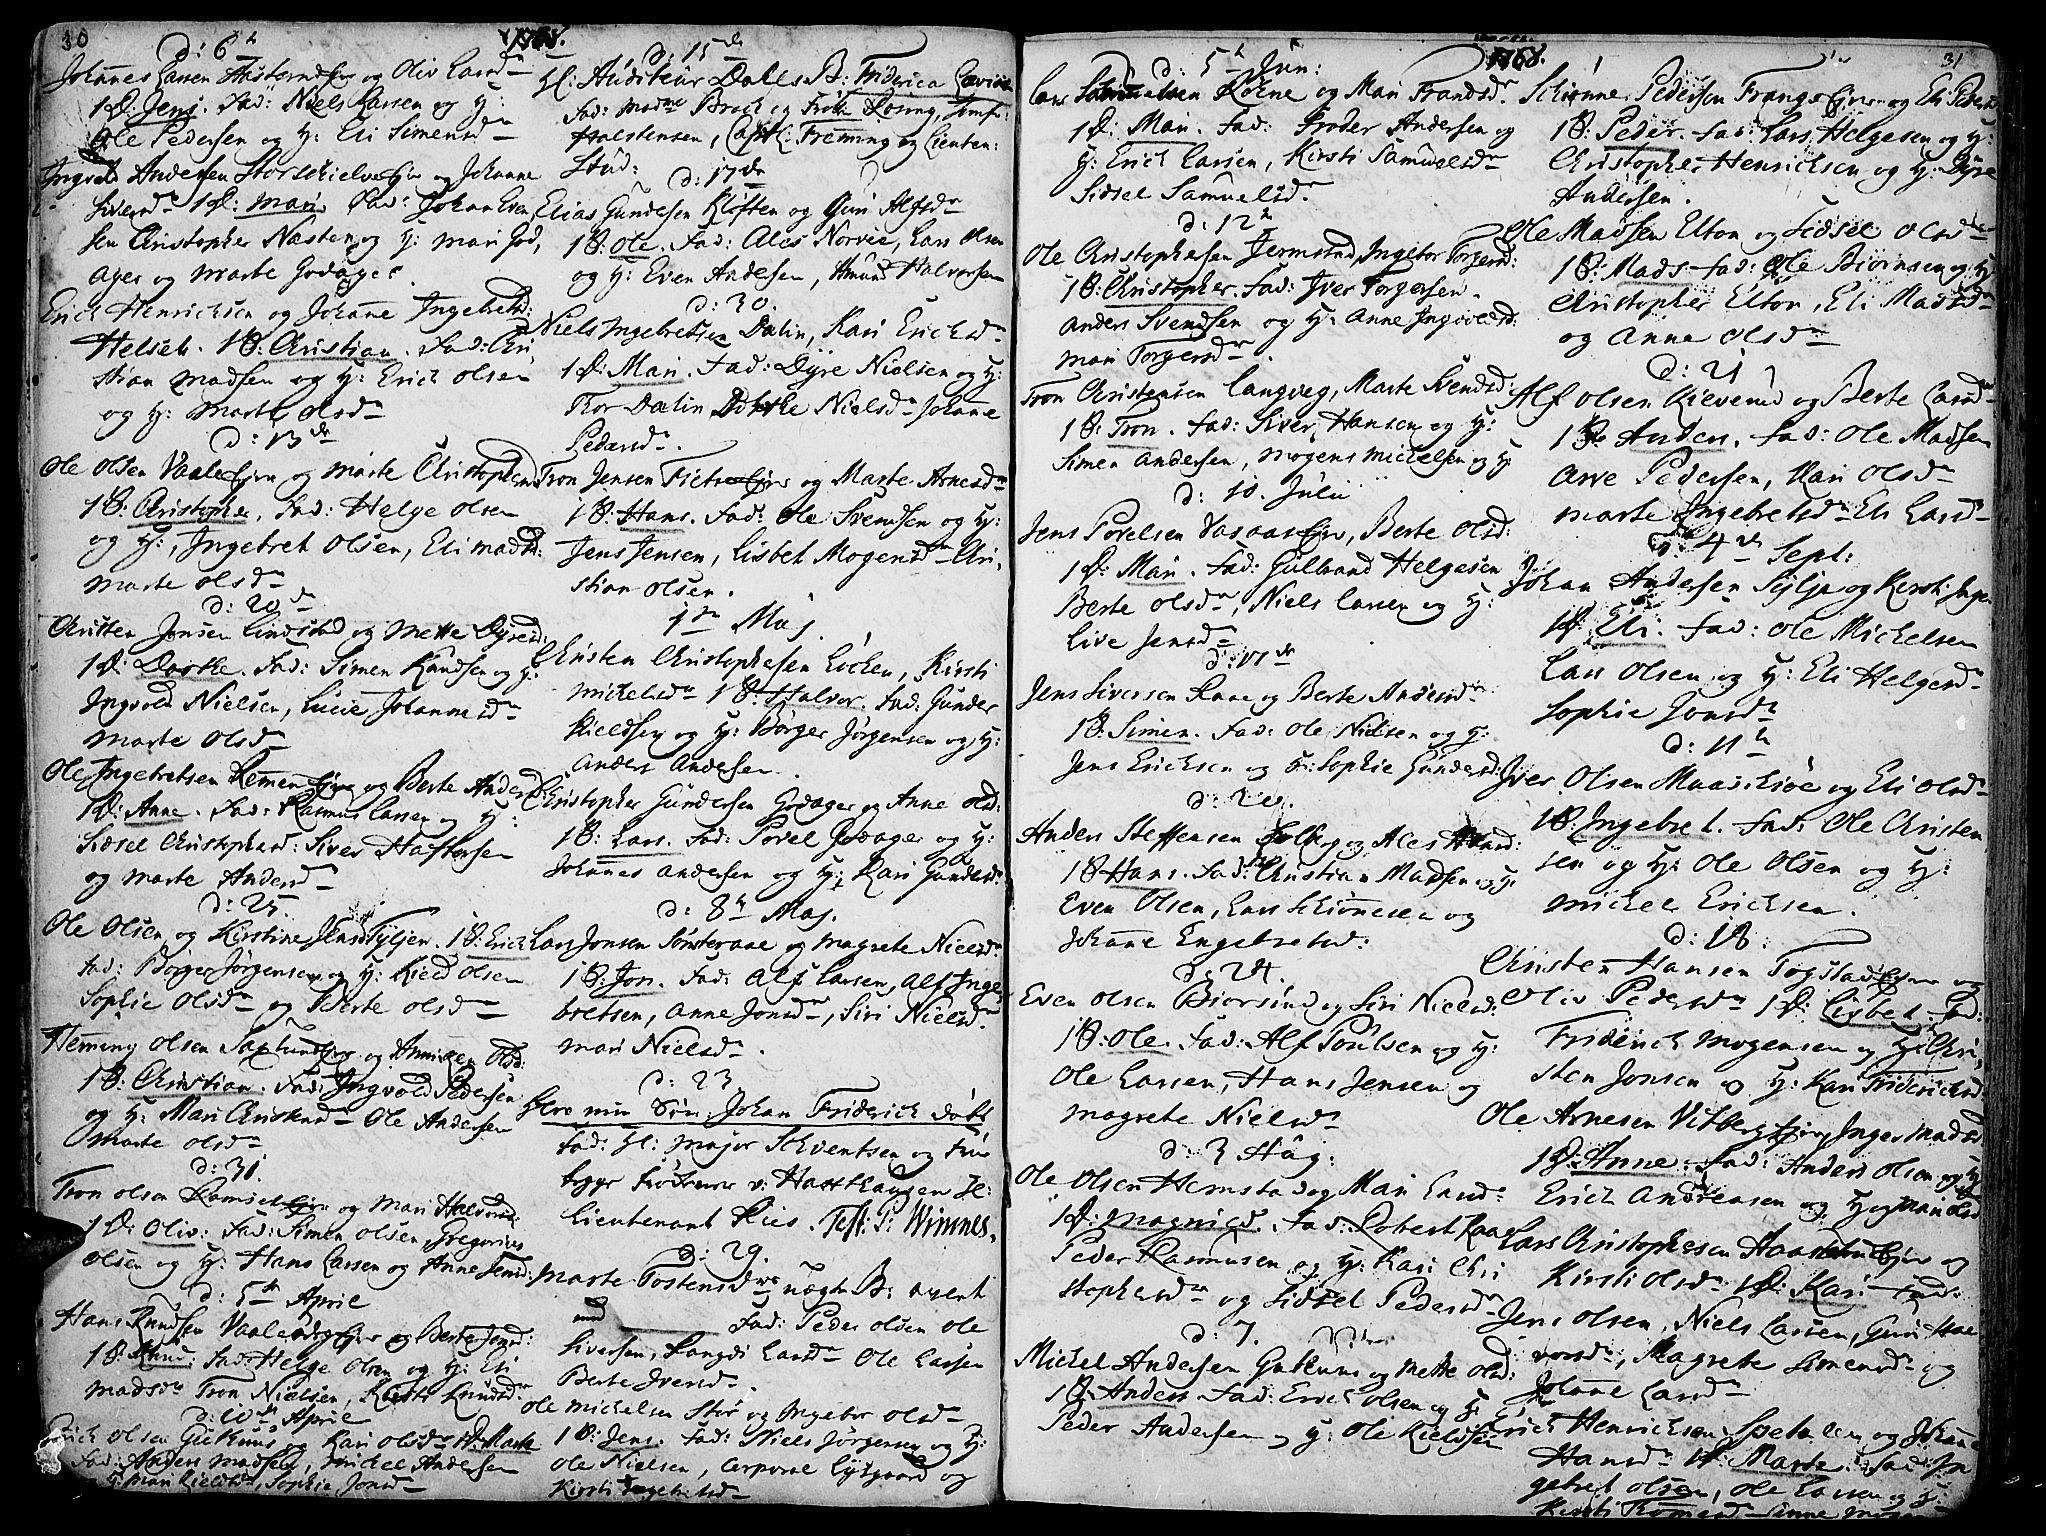 30
1768.
d: 6
Johannes Larsen og Oliv Larsd
1 D: Jens. Fad: Niels Larsen og H:
Ole Pedersen og H: Eli Simensd
Ingvold Andersen og Johanne
Siversd 1 D: Mari Fad: Johan Even
sen Christopher Næsten og H: Mari God,
ager og Marte Godager
Erich Henrichsen og Johanne Ingebretsd:
Helseth. 1 B: Christian. Fad: Chri
stian Madsen og H: Erich Olsen
og H: Marte Olsd
d: 13
Ole Olsen Vaale og Marte Christophersd
1 B: Christopher. Fad: Helge Olsen
og H:, Ingebret Olsen, Eli Madsd:
Marte Olsd
d: 20
Christen Jonsen Lindstad og Mette Dyresd:
1 D: Dorthe. Fad: Simen Knudsen og H:
Ingvold Nielsen, Lucie Johannesd
Marte Olsd
Ole Ingebretsen og Berte Andersd
1 D: Anne. Fad: Rasmus Larsen og H:
Sidsel Christophersd: Siver Haftorsen
og Marte Andersd
d: 25.
Ole Olsen og Kirstine Jensd Syljen. 1 B: Erich
Fad: Børger Jørgensen og H: Kield Olsen
Sophie Olsd og Berte Olsd
Hemming Olsen og Anniken Olsd:
1 B: Christian. Fad: Ingvold Pedersen
og H: Mari Ole Andersen
Marte Olsd
d: 31
Tron Olsen Ramset og Mari Halvorsd:
1 D: Oliv. Fad: Simen Olsen, Gregorius
Olsen og H: Hans Larsen og Anne Jensd:
d: 5 April
Hans Knudsen og Berte Jensd:
1 B: Knud. Fad: Helge Olsen og H: Eli
Madsd Tron Nielsen, Knudsd
d: 10 April
Erich Olsen og Kari Olsd 1 D: Marte
Fad: Anders Madsen, Michel Andersen
H: Mari Kieldsd, Sophie Jonsd
d: 15
Hl: Auditeur Dalls B: Friderica
Fad: Mad Brock og Rosing, Jomf:
Halstensen, Capt: Fremming og Lieuten:
Stud:
d: 17
Elias Gundesen Kløften og Guri Alfsd
1 B: Ole. Fad: Ales Norvie, Lars Olsen
og H: Even Andersen, Amund Halvorsen
d: 30.
Niels Ingebretsen Dalin, Kari Erichsd
1 D: Mari. Fad: Dyre Nielsen og H:
Thor Dalin Dorthe Nielsd Johanne
Pedersd.
Tron Jensen og Marte Arnesd
1 B: Hans. Fad: Ole Svendsen og H:
Jens Jensen, Lisbet Mogensd Chri,
stian Olsen.
1 Maj.
Christen Christophersen Løcken, Kirsti
Michelsd 1 B: Halvor. Fad: Gunder
Kieldsen og H: Børger Jørgensen og H:
Anders Andersen.
Christopher Gundersen Godager og Anne Olsd:
1 B: Lars. Fad: Povel Godager og H:
Johannes Andersen og H: Kari Gundersd
d: 8 Maj.
Lars Jonsen Sønsteraae og Magrete Nielsd
1 B: Jon. Fad: Alf Larsen, Alf Inge
bretsen, Anne Jonsd, Siri Nielsd
Mari Nielsd.
d: 23
min Søn Johan Friderich døbt
Fad: Hl: Major Schventsen og Frue
v: Hauthausen Hl:
Lieutenant Ries. Test: P: Wimnes.
d: 29.
Marte Tostensd uægte B: avlet
med Fad: Peder Olsen Ole
Siversen, Rangdi Larsd Ole Larsen
Berte Iversd.
Ole Michelsen Stør og Ingebor Olsd
1 B: Jens. Fad: Niels Jørgensen og H:
Ole Nielsen, Corporal Lysgaard og
Kirsti Ingebretsd
1768.
31
d: 5 Jun:
Lars Samuelsen og Mari Frandsd
1 D: Mari. Fad: Peder Andersen og
H: Erich Larsen, Kirsti Samuelsd
Sidsel Samuelsd.
d: 12
Ole Christophersen Jermstad, Ingebor Torgersd:
1 B: Christopher. Fad: Iver Torgersen.
Anders Svendsen og H: Anne Ingvoldsd:
Mari Torgersd.
Tron Christensen Langveg, Marte Svendsd:
1 B: Tron. Fad: Siver Hansen og H:
Simen Andersen, Mogens Michelsen og H:
d: 10. Julii
Jens Povelsen Vasaas, Berte Olsd:
1 D: Mari. Fad: Gulbrand Helgesen
Berte Olsd, Niels Larsen og H:
Live Jensd
d: 17
Jens Siversen Rane og Berte Andersd
1 B: Simen. Fad: Ole Nielsen og H:
Jens Erichsen og H: Sophie Gundersd:
d: 20.
Anders Steffensen Solberg og Ales
1 B: Hans. Fad: Christian Madsen og H:
Even Olsen, Lars Schiønnesen og
Johanne Engebretsd:
d: 24.
Even Olsen Biørsund og Siri Nielsd:
1 B: Ole. Fad: Alf Poulsen og H:
Ole Larsen, Hans Jensen og
Magrete Nielsd
d: 3 Aug:
Ole Olsen Hemstad og Mari Larsd
1 D: Magnild. Fad: Robert
Peder Rasmusen og H: Kari Chri
stophersd og Sidsel Pedersd
d: 7.
Michel Andersen og Mette Olsd:
1 B: Anders Fad: Erich Olsen og H:
Peder Andersen og H: Ole Kieldsen
Schiønne Pedersen og Eli Pedersd
1 B: Peder. Fad: Lars Helgesen og H:
Christopher Henrichsen og H: Dyre
Andersen.
Ole Madsen Elton og Sidsel Olsd
1 B: Mads Fad: Ole Biørnsen og H:
Christopher Elton, Eli Madsd
og Anne Olsd
d: 21
Alf Olsen Kieverud og Berte Larsd
1 B: Anders. Fad: Ole Madsen
Arve Pedersen, Kari Olsd
Marte Ingebretsd Eli Larsd
d: 4 Sept:
Johan Andersen Sylja og Kirsti
1 D: Eli. Fad: Ole Michelsen
Lars Olsen og H: Eli Helgesd
Sophie Jonsd
d: 11
Iver Olsen og Eli Olsd
1 B: Ingebret. Fad: Ole Christen
sen og H: Ole Olsen og H:
Michel Erichsen.
d: 18.
Christen Hansen Togstad og
Oliv Pedersd 1 D: Lisbet. Fad:
Friderich Mogensen og H: Chri,
sten Jonsen og H: Kari Friderichsd
Ole Arnesen Vitberg, Inger Madsd
1 D: Anne. Fad: Anders Olsen og H:
Erich Andersen og H: og Mari Olsd
Lars Christophersen og
Kirsti Olsd 1 D: Kari Fad:
Jens Olsen, Niels Larsen, Guri Hal
vorsd, Magrete Simensd og
Johanne Larsd
Erich Henrichsen Spetalen og Johanne
Hansd 1 D: Marte. Fad: In
gebret Olsen, Ole Larsen og H:
Kirsti